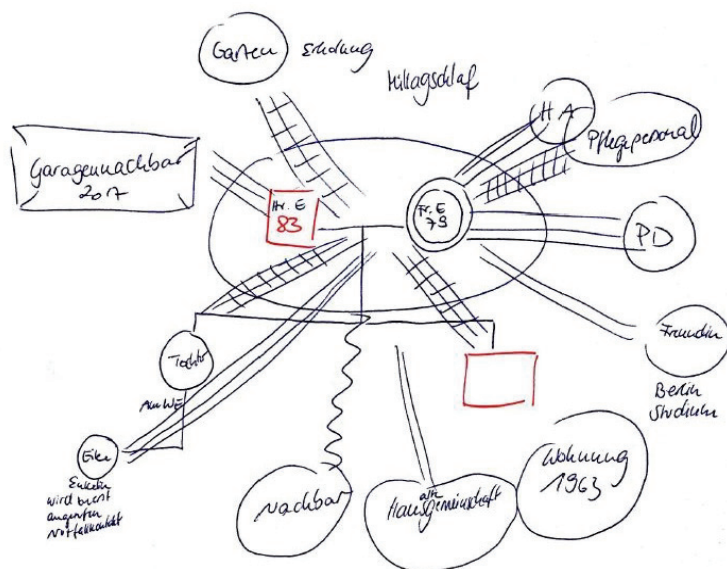 Garten
Erholung
Mittagschlaf
HA
Pflegepersonal
Garagennachbar
2017
Hr. E
83
Fr. E
79
PD
Freundin
Berlin
Studium
Tochter
Am WE
Enkelin
wird zuerst
angerufen
Notfallkontakt
Nachbar
alte
Hausgemeinschaft
Wohnung
1963